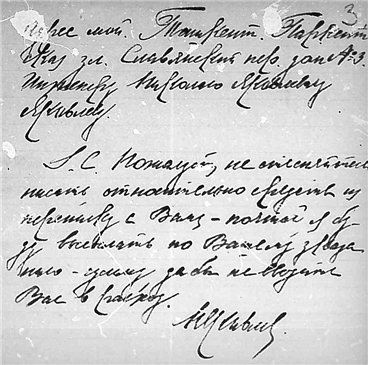 3
Адрес мой. Ташкент. Паркент
ская ул. Славянский пер. дом № 3.
Инженеру Николаю Яковлевичу
Яковлеву.
P.S. Пожалуйста, не стесняйтесь
писать относительно средств на
переписку с Вами - почтой я бу
ду высылать по Вашему указа
нию - сумму дабы не вводить
Вас в расход.
НЯковлев.